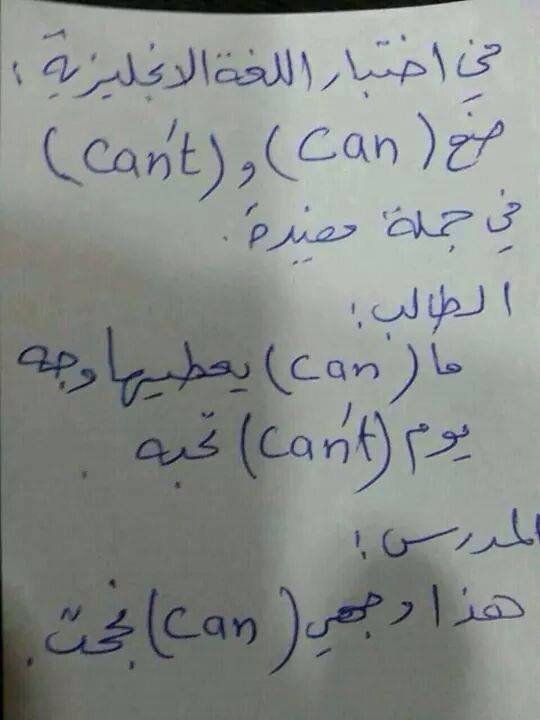 في اختبار اللغة الانجليزية :
ضع (can) و (can't)
في جملة مفيدة.
الطالب :
ما (can) يعطيها وجه
يوم (can't) تحبه .
المدرس :
هذا وجهي (can) نجحت .